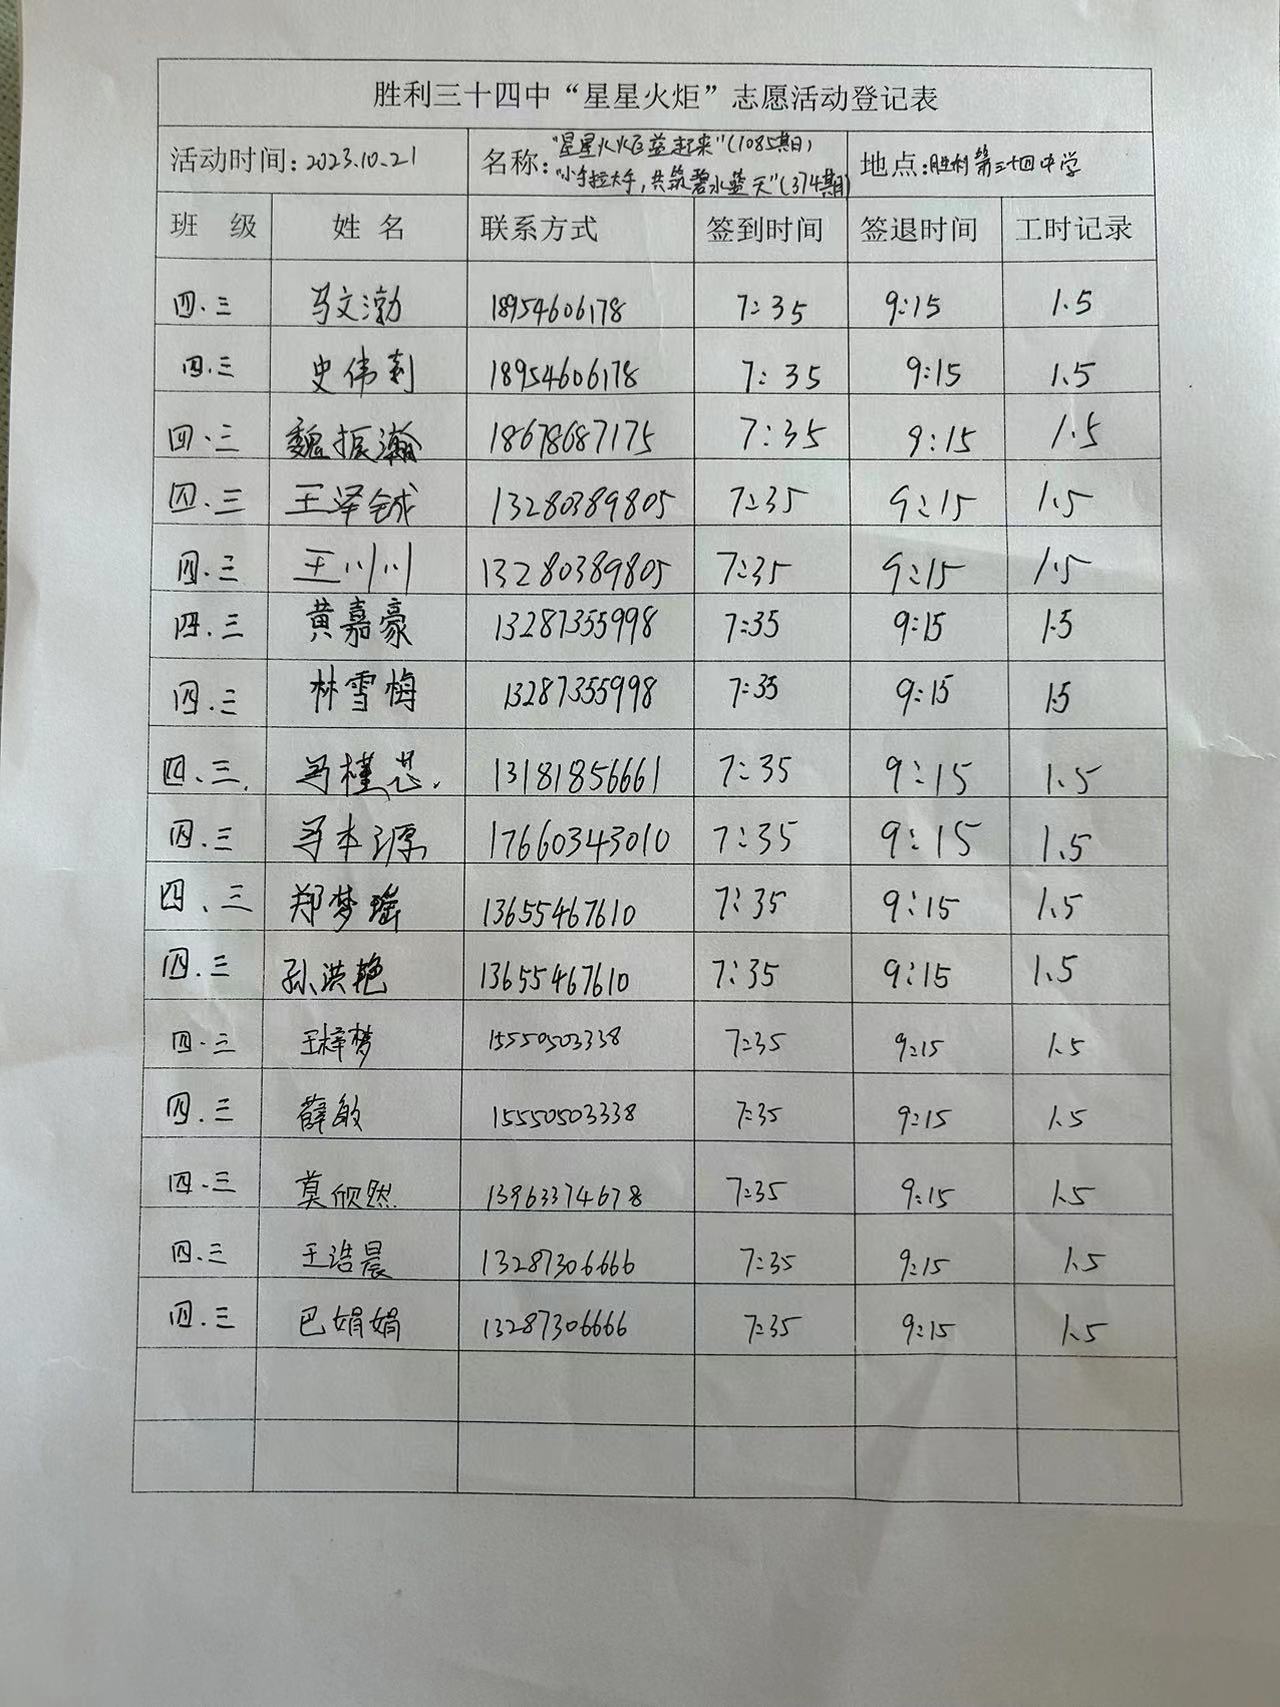 胜利三十四中“星星火炬”志愿活动登记表
活动时间：2023.10.21 名称：“星星火炬益起来”(1085期) “小手拉大手，共筑碧水蓝天”(374期) 地点：胜利第三十四中学
班 级 姓 名 联系方式 签到时间 签退时间 工时记录
四.三 马文渤 18954606178 7:35 9:15 1.5
四.三 史伟莉 18954606178 7:35 9:15 1.5
四.三 魏振瀚 18678687175 7:35 9:15 1.5
四.三 王泽铖 13280389805 7:35 9:15 1.5
四.三 王川川 13280389805 7:35 9:15 1.5
四.三 黄嘉豪 13287355998 7:35 9:15 1.5
四.三 林雪梅 13287355998 7:35 9:15 1.5
四、三. 马槿芯. 13181856661 7:35 9:15 1.5
四.三 马本源 17660343010 7:35 9:15 1.5
四、三 郑梦瑶 13655467610 7:35 9:15 1.5
四.三 孙洪艳 13655467610 7:35 9:15 1.5
四.三 王梓梦 15550503338 7:35 9:15 1.5
四.三 薛敏 15550503338 7:35 9:15 1.5
四.三 莫欣然 13963374678 7:35 9:15 1.5
四.三 王浩晨 13287306666 7:35 9:15 1.5
四.三 巴娟娟 13287306666 7:35 9:15 1.5